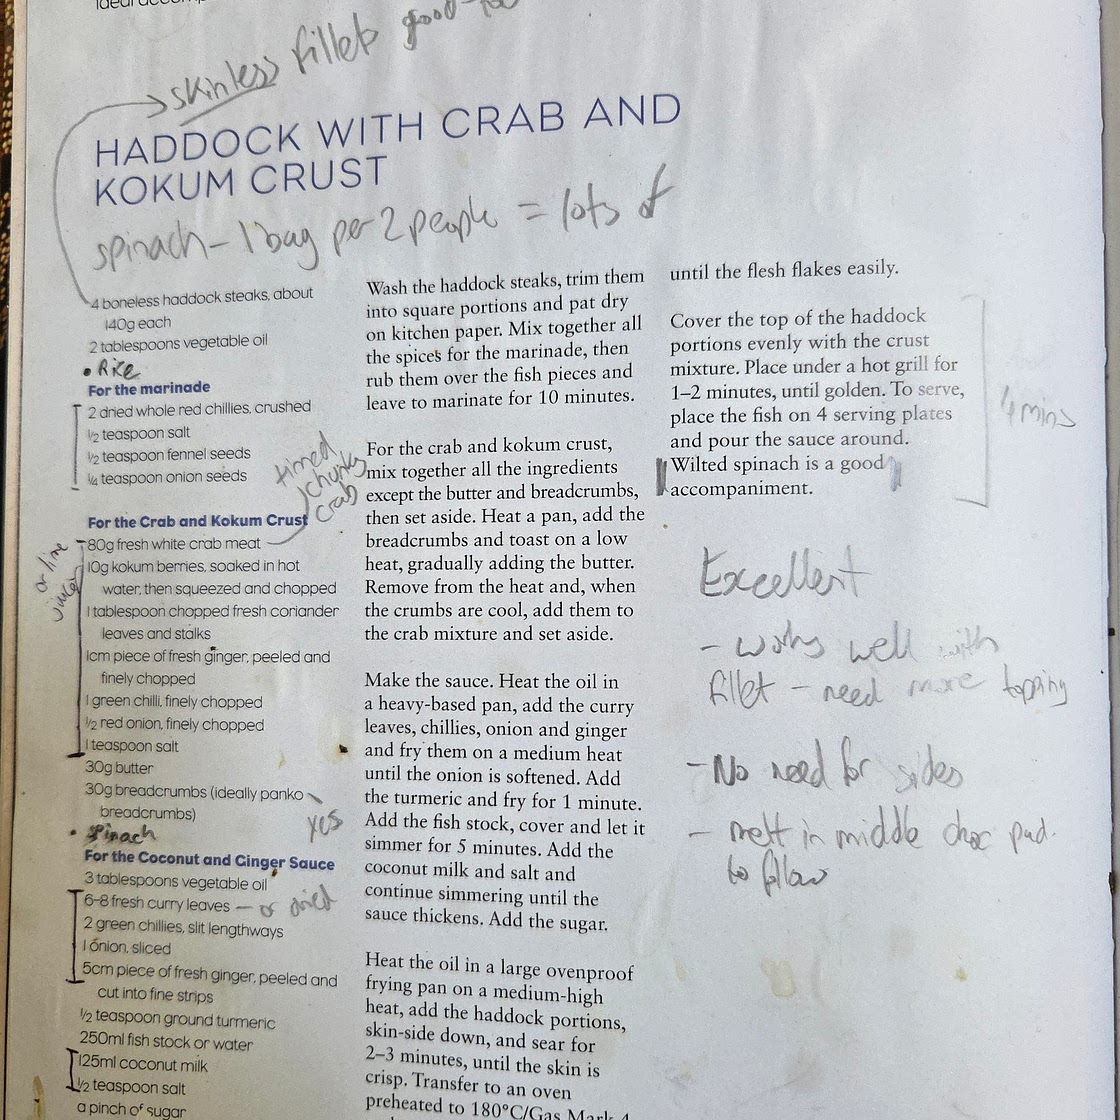 skinless fillets good
HADDOCK WITH CRAB AND
KOKUM CRUST
spinach - 1 bag per 2 people = lots of
4 boneless haddock steaks, about
140g each
2 tablespoons vegetable oil
• Rice
For the marinade
2 dried whole red chillies, crushed
½ teaspoon salt
½ teaspoon fennel seeds
¼ teaspoon onion seeds
tinned
chunky
crab
For the Crab and Kokum Crust
80g fresh white crab meat
or lime
10g kokum berries, soaked in hot
water, then squeezed and chopped
1 tablespoon chopped fresh coriander
leaves and stalks
1cm piece of fresh ginger, peeled and
finely chopped
1 green chilli, finely chopped
½ red onion, finely chopped
1 teaspoon salt
30g butter
30g breadcrumbs (ideally panko
breadcrumbs)
yes
• spinach
For the Coconut and Ginger Sauce
3 tablespoons vegetable oil
6–8 fresh curry leaves – or dried
2 green chillies, slit lengthways
1 onion, sliced
5cm piece of fresh ginger, peeled and
cut into fine strips
½ teaspoon ground turmeric
250ml fish stock or water
125ml coconut milk
½ teaspoon salt
a pinch of sugar
Wash the haddock steaks, trim them
into square portions and pat dry
on kitchen paper. Mix together all
the spices for the marinade, then
rub them over the fish pieces and
leave to marinate for 10 minutes.
For the crab and kokum crust,
mix together all the ingredients
except the butter and breadcrumbs,
then set aside. Heat a pan, add the
breadcrumbs and toast on a low
heat, gradually adding the butter.
Remove from the heat and, when
the crumbs are cool, add them to
the crab mixture and set aside.
Make the sauce. Heat the oil in
a heavy-based pan, add the curry
leaves, chillies, onion and ginger
and fry them on a medium heat
until the onion is softened. Add
the turmeric and fry for 1 minute.
Add the fish stock, cover and let it
simmer for 5 minutes. Add the
coconut milk and salt and
continue simmering until the
sauce thickens. Add the sugar.
Heat the oil in a large ovenproof
frying pan on a medium-high
heat, add the haddock portions,
skin-side down, and sear for
2–3 minutes, until the skin is
crisp. Transfer to an oven
preheated to 180°C/Gas Mark 4
until the flesh flakes easily.
Cover the top of the haddock
portions evenly with the crust
mixture. Place under a hot grill for
1–2 minutes, until golden. To serve,
place the fish on 4 serving plates
and pour the sauce around.
Wilted spinach is a good
accompaniment.
4 mins
Excellent
- works well with
fillet - need more topping
- No need for sides
- melt in middle choc pud.
to follow